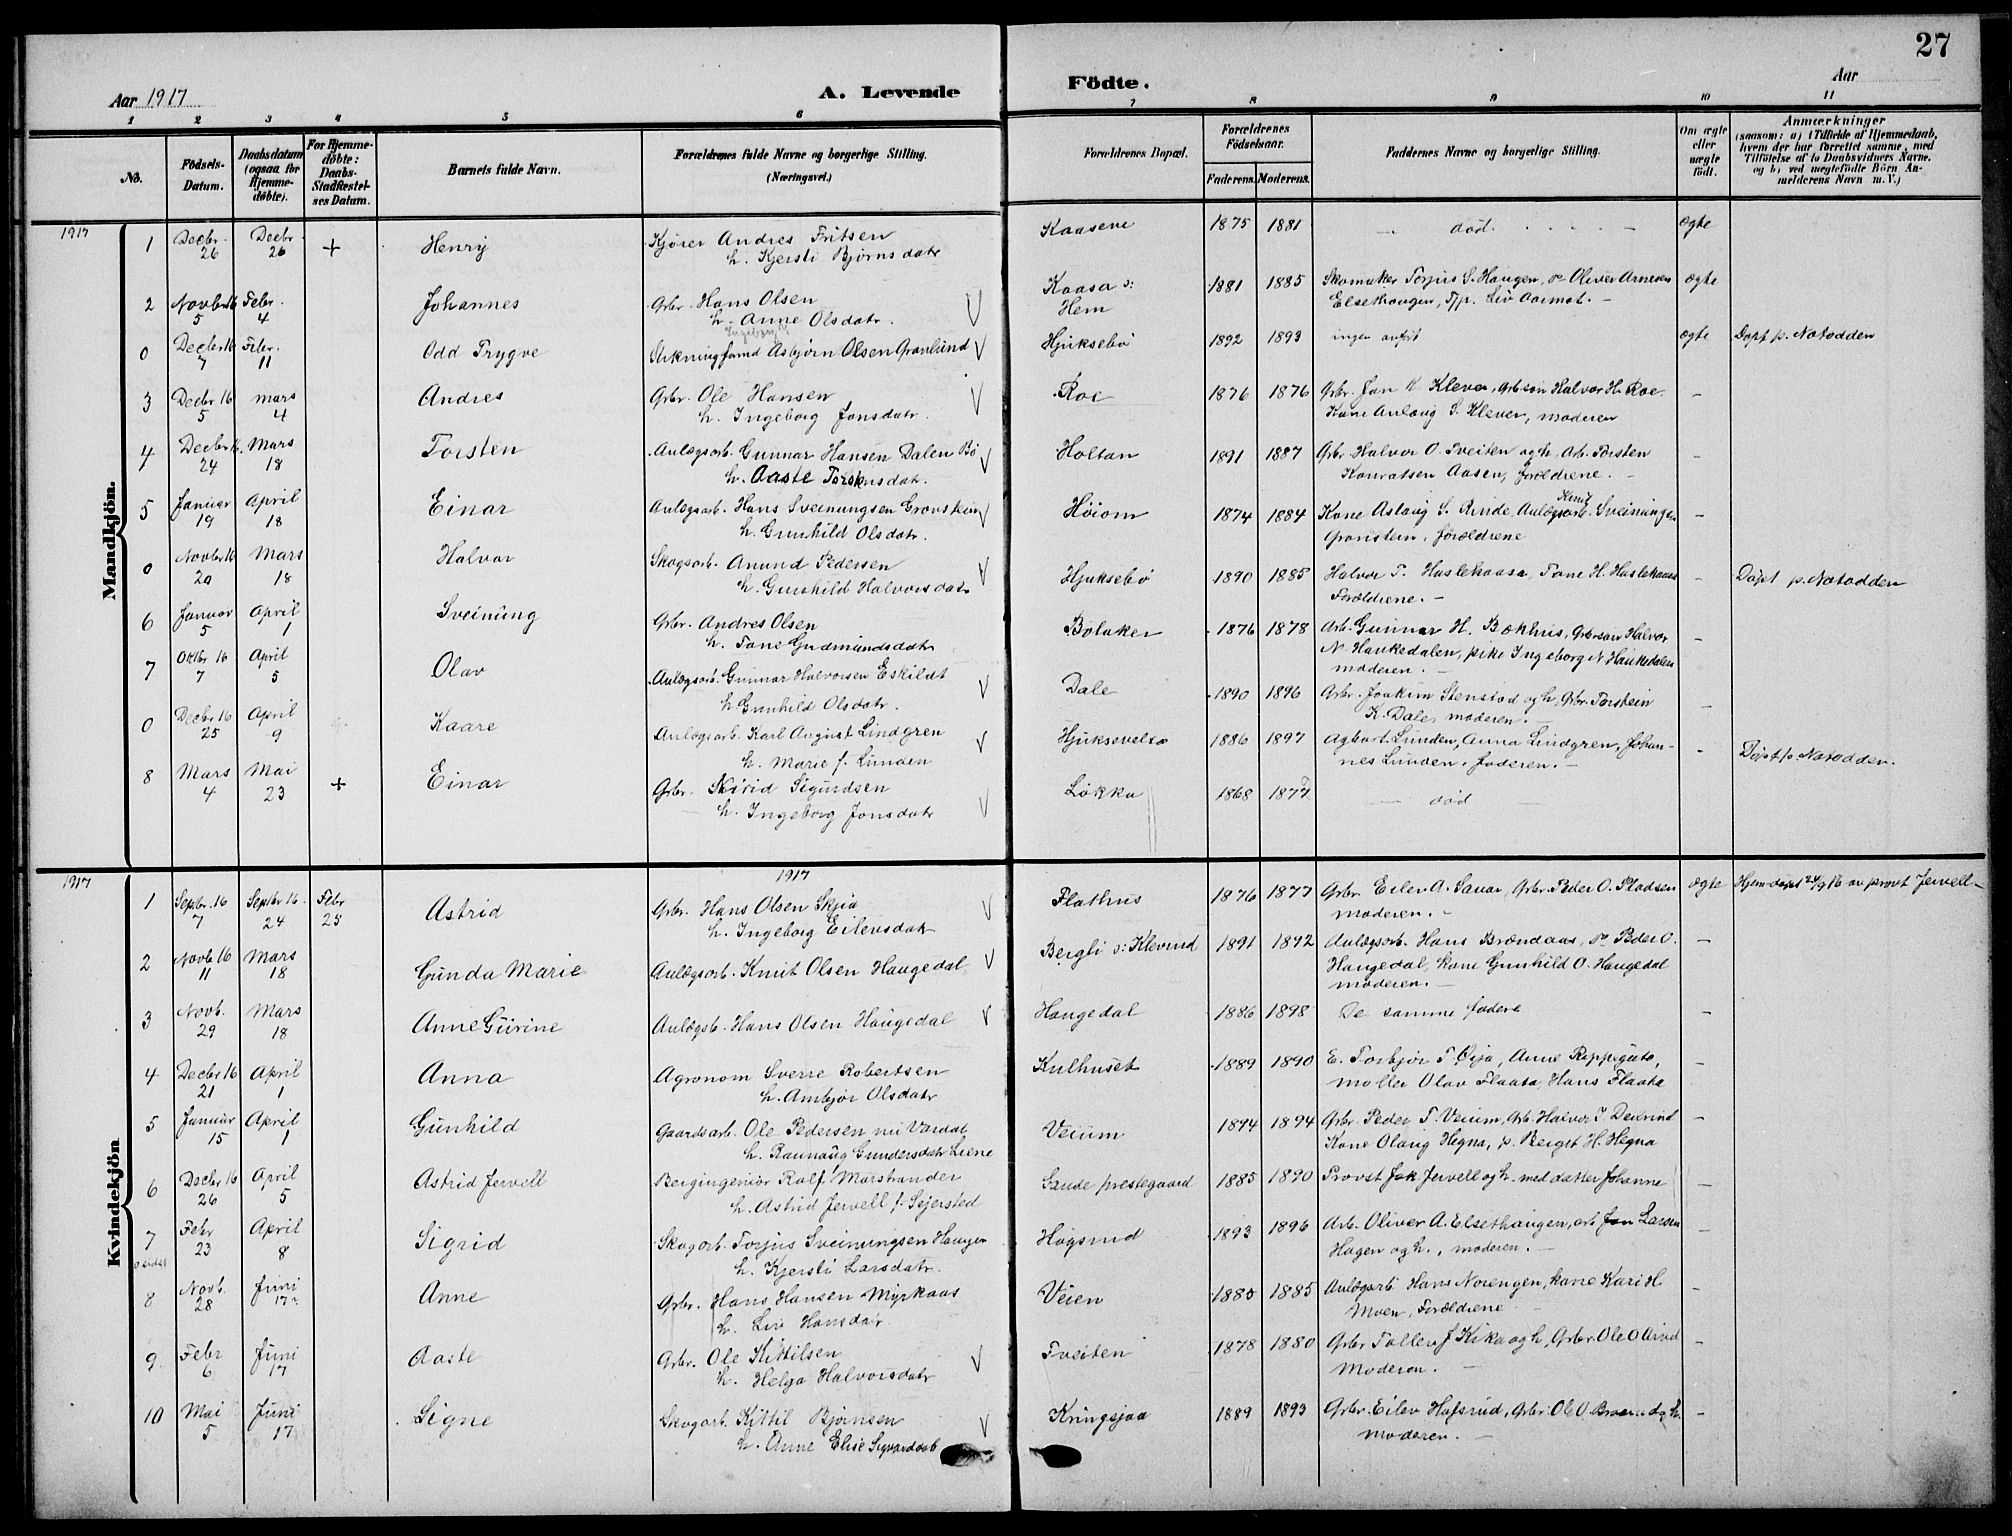 27
Aar 1917
A. Levende
Födte.
Aar
1 2 3 4 5 6 7 8 9 10 11
No.
Födsels-
Datum.
Daabsdatum
(ogsaa for
Hjemme-
döbte).
For Hjemme-
döbte:
Daabs-
Stadfæstel-
ses Datum.
Barnets fulde Navn.
Forældrenes fulde Navne og borgerlige Stilling.
(Næringsvei.)
Forældrenes Bopæl.
Forældrenes
Födselsaar.
Faderens. Moderens.
Faddernes Navne og borgerlige Stilling.
Om ægte
eller
uægte
födt.
Anmærkninger
(saasom: a) i Tilfælde af Hjemmedaab,
hvem der har forrettet samme, med
Tilföielse af to Daabsvidners Navne,
og b) ved uægtefödte Börn An-
melderens Navn m. V.)
Mandkjön.
1917
1 Decbr. 26 Decbr 26 + Henry Kjører Andres Fritsen Kaasene 1875 1881 død. ægte
h. Kjersti Bjørnsdatr
2 Novbr 16 5 Febr. 4 Johannes Grbr. Hans Olsen Kaasa v: 1881 1885 Skomaker Torjus S. Haugen, Oliver Arnesen ægte
h. Anne Olsdatr. Hem Elsethaugen, Liv Aarmot. -
0 Decbr 16 7 Febr. 11 Odd Trygve Asbjørn Olsen Granlund Hjuksebø 1892 1893 ingen anført ægte Døpt p. Notodden
3 Decbr 16 5 mars 4 Andres Grbr. Ole Hansen Roe 1876 1876 Grbr. Jon Klever, Grbsøn Halvor H. Roe. -
h. Ingeborg Jonsdatr. Kone Anlaug S. Klever, moderen
4 Decbr 16. 24 Mars 18 Torsten Anlægsarb. Gunnar Hansen Dalen Bø Holtan 1891 1887 Grbr Halvor O. Tveiten og h, Arb. Torsten -
h. Aaste Torstensdatr. Konratsen Aasen, forældrene.
5 Januar 19 April 18 Einar Anlægsarb. Hans Sveinungsen Grovstein Høiom 1874 1884 Kone Aslaug S. Rinde, Anlægsarb. Knut Sveinungsen -
h. Gunhild Olsdatr. forældrene
0 Novbr 16 20 Mars 18 Halvor Skogsarb. Anund Pedersen Hjuksebø 1890 1885 Halvor T. Haslekaasa, Tone H. Haslekaasa - Døpt p. Notodden
h. Gunhild Halvorsdatr Forældrene. -
6 Januar 5 April 1 Sveinung Grbr. Andres Olsen Bolaker 1876 1878 Arb. Gunnar H. Bækhus, Grbsøn Halvor -
h. Tone Gudmundsdatr N. Haukedalen, pike Ingeborg N Haukedalen
moderen.
7 Oktbr 16 7 April 5 Olav Anlægsarb. Gunnar Halvorsen Eskildt Dale 1890 1896 Grbr. Joakim Stenstad og h, Grbr. Torstein -
h Gunhild Olsdatr. K. Dale, moderen. -
0 Decbr 16 25 April 9 Kaare Anlægsarb. Karl August Lindgren Hjuksevelta 1886 1897 Lunden, Anna Lindgren, Johan- - Døpt p. Notodden.
h. Marie f. Lunden nes Lunden, faderen. -
8 Mars 4 Mai 23 + Einar Grbr. Sigurdsen Løkka 1868 1877 død
h. Ingeborg Jonsdatr
Kvindekjön
1917
1917
1 Septbr. 16 7 Septbr 16. 24 Febr 25 Astrid Grbr. Hans Olsen Skjia Flathus 1876 1877 Grbr. Eilev A. Sauar, Grbr. Peder O. Pladsen ægte Hjemdøpt 24/9 16 av provst Jervell -
h. Ingeborg Eilevsdatr moderen. -
2 Novb 16 11 Mars 18 Gunda Marie Anlægsarb. Knut Olsen Haugedal Bergli v: Klevrud 1891 1892 Anlægsarb. Hans Brændaas, Peder O. -
Haugedal, kone Gunhild O. Haugedal
moderen. -
3 Novb. 29 Mars 18 Anne Gurine Hans Olsen Haugedal Haugedal 1886 1898 De samme faddere -
4 Decbr 16 21 April 1 Anna Agronom Sverre Robertsen Kulhuset 1889 1890 E. Torbjør T. Øija, Anne Rippegutu, -
h. Ambjør Olsdatr møller Olav Flaata, Hans Flaata
5 Januar 15 April 1 Gunhild Gaardsarb. Ole Pedersen nu Vardal Veium 1894 1894 Grbr Peder T. Veium, Arb. Halvor Deilrind -
h. Raunaug Gundersdatr Liene Kone Olaug Hegna, p. Bergit H. Hegna
6 Decbr 16 26 April 5 Astrid Jervell Bergingeniør Rolf Marstrander Saude prestegaard 1885 1890 Provst Jak Jervell og h. med datter Johanne -
h. Astrid Jervell f. Sejersted
7 Febr 23 April 8 Sigrid Skogarb. Torjus Sveinungsen Haugen Høgsrud 1893 1896 Arb. Oliver A. Elsethaugen, arb. Jon Larsen -
h. Kjersti Larsdatr. Hagen og h., moderen. -
8 Novb. 28 Juni 17 Anne Grbr. Hans Hansen Myrkaas Veien 1885 1885 Anlægsarb Hans Norengen, kone Kari H. -
h. Liv Hansdatr. Moen, Forældrene
9 Febr 6 Juni 17 Aaste Grbr. Ole Kittilsen Tveiten 1878 1880 Grbr Tollev J Kika og h, Grbr. Ole O Arud
h. Helga Halvorsdatr Moderen. -
10 Mai 5 Juni 17 Signe Skogarb. Kittil Bjørnsen Kringsjaa 1889 1893 Grbr. Eilev Hafsrud, Grbr. Ole O. og h. -
h. Anne Elise Sigvardsdatr moderen. -